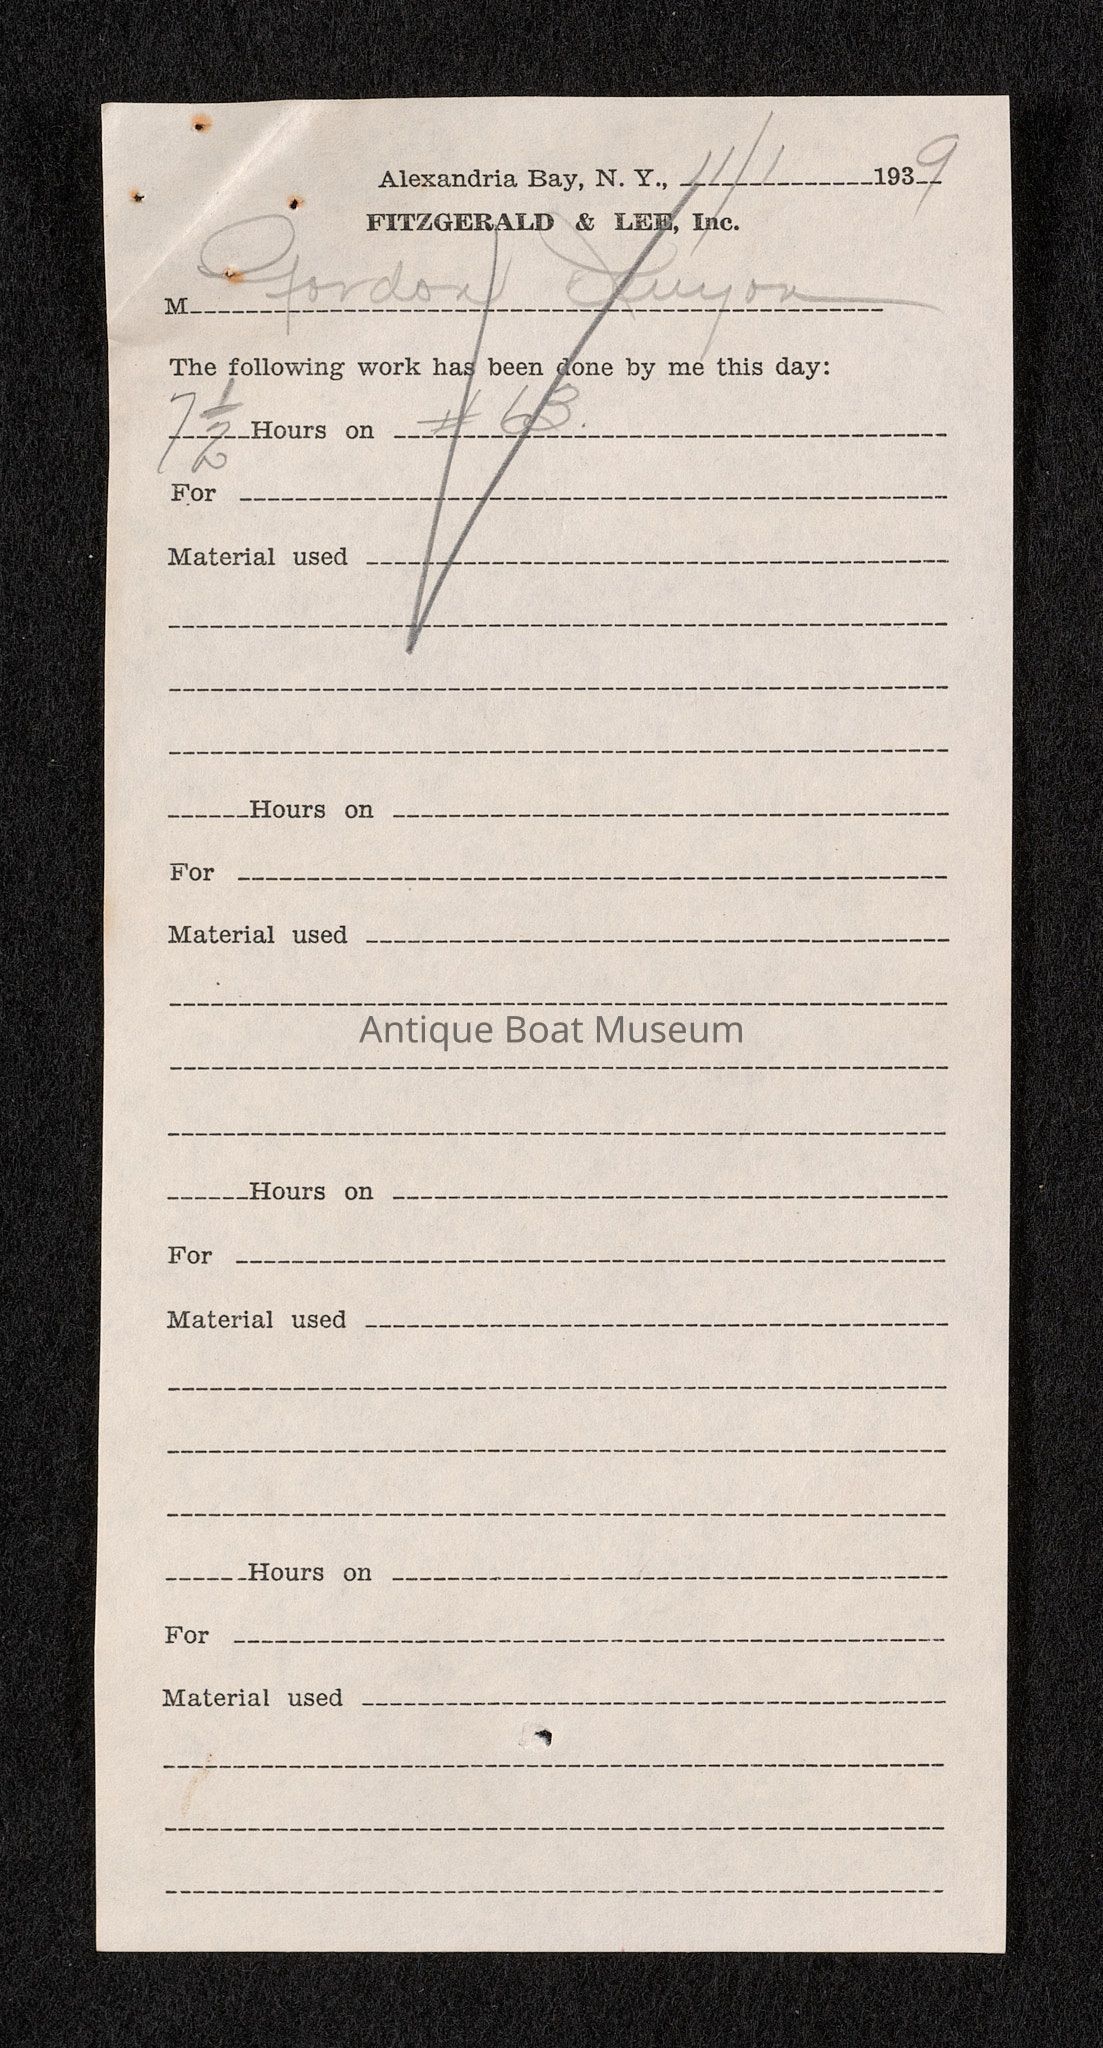 Alexandria Bay, N. Y., 11/1 1939
FITZGERALD & LEE, Inc.
M Gordon
The following work has been done by me this day:
7 1/2 Hours on # 63.
For
Material used
Hours on
For
Material used
Antique Boat Museum
Hours on
For
Material used
Hours on
For
Material used